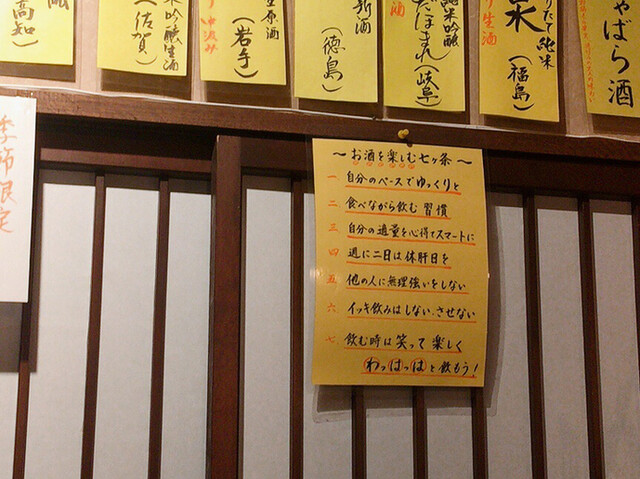 (高知)
米吟醸生酒
(佐賀)
生原酒
中汲み
(岩手)
新酒
(徳島)
純米吟醸
だほまれ
(岐阜)
りたて純米
生酒
(福島)
ゃばら酒
季節限定
～お酒を楽しむ七ヶ条～
一 自分のペースでゆっくりと
二 食べながら飲む習慣
三 自分の適量を心得てスマートに
四 週に二日は休肝日を
五 他の人に無理強いをしない
六 イッキ飲みはしない、させない
七 飲む時は笑って楽しく
わっはっはと飲もう!